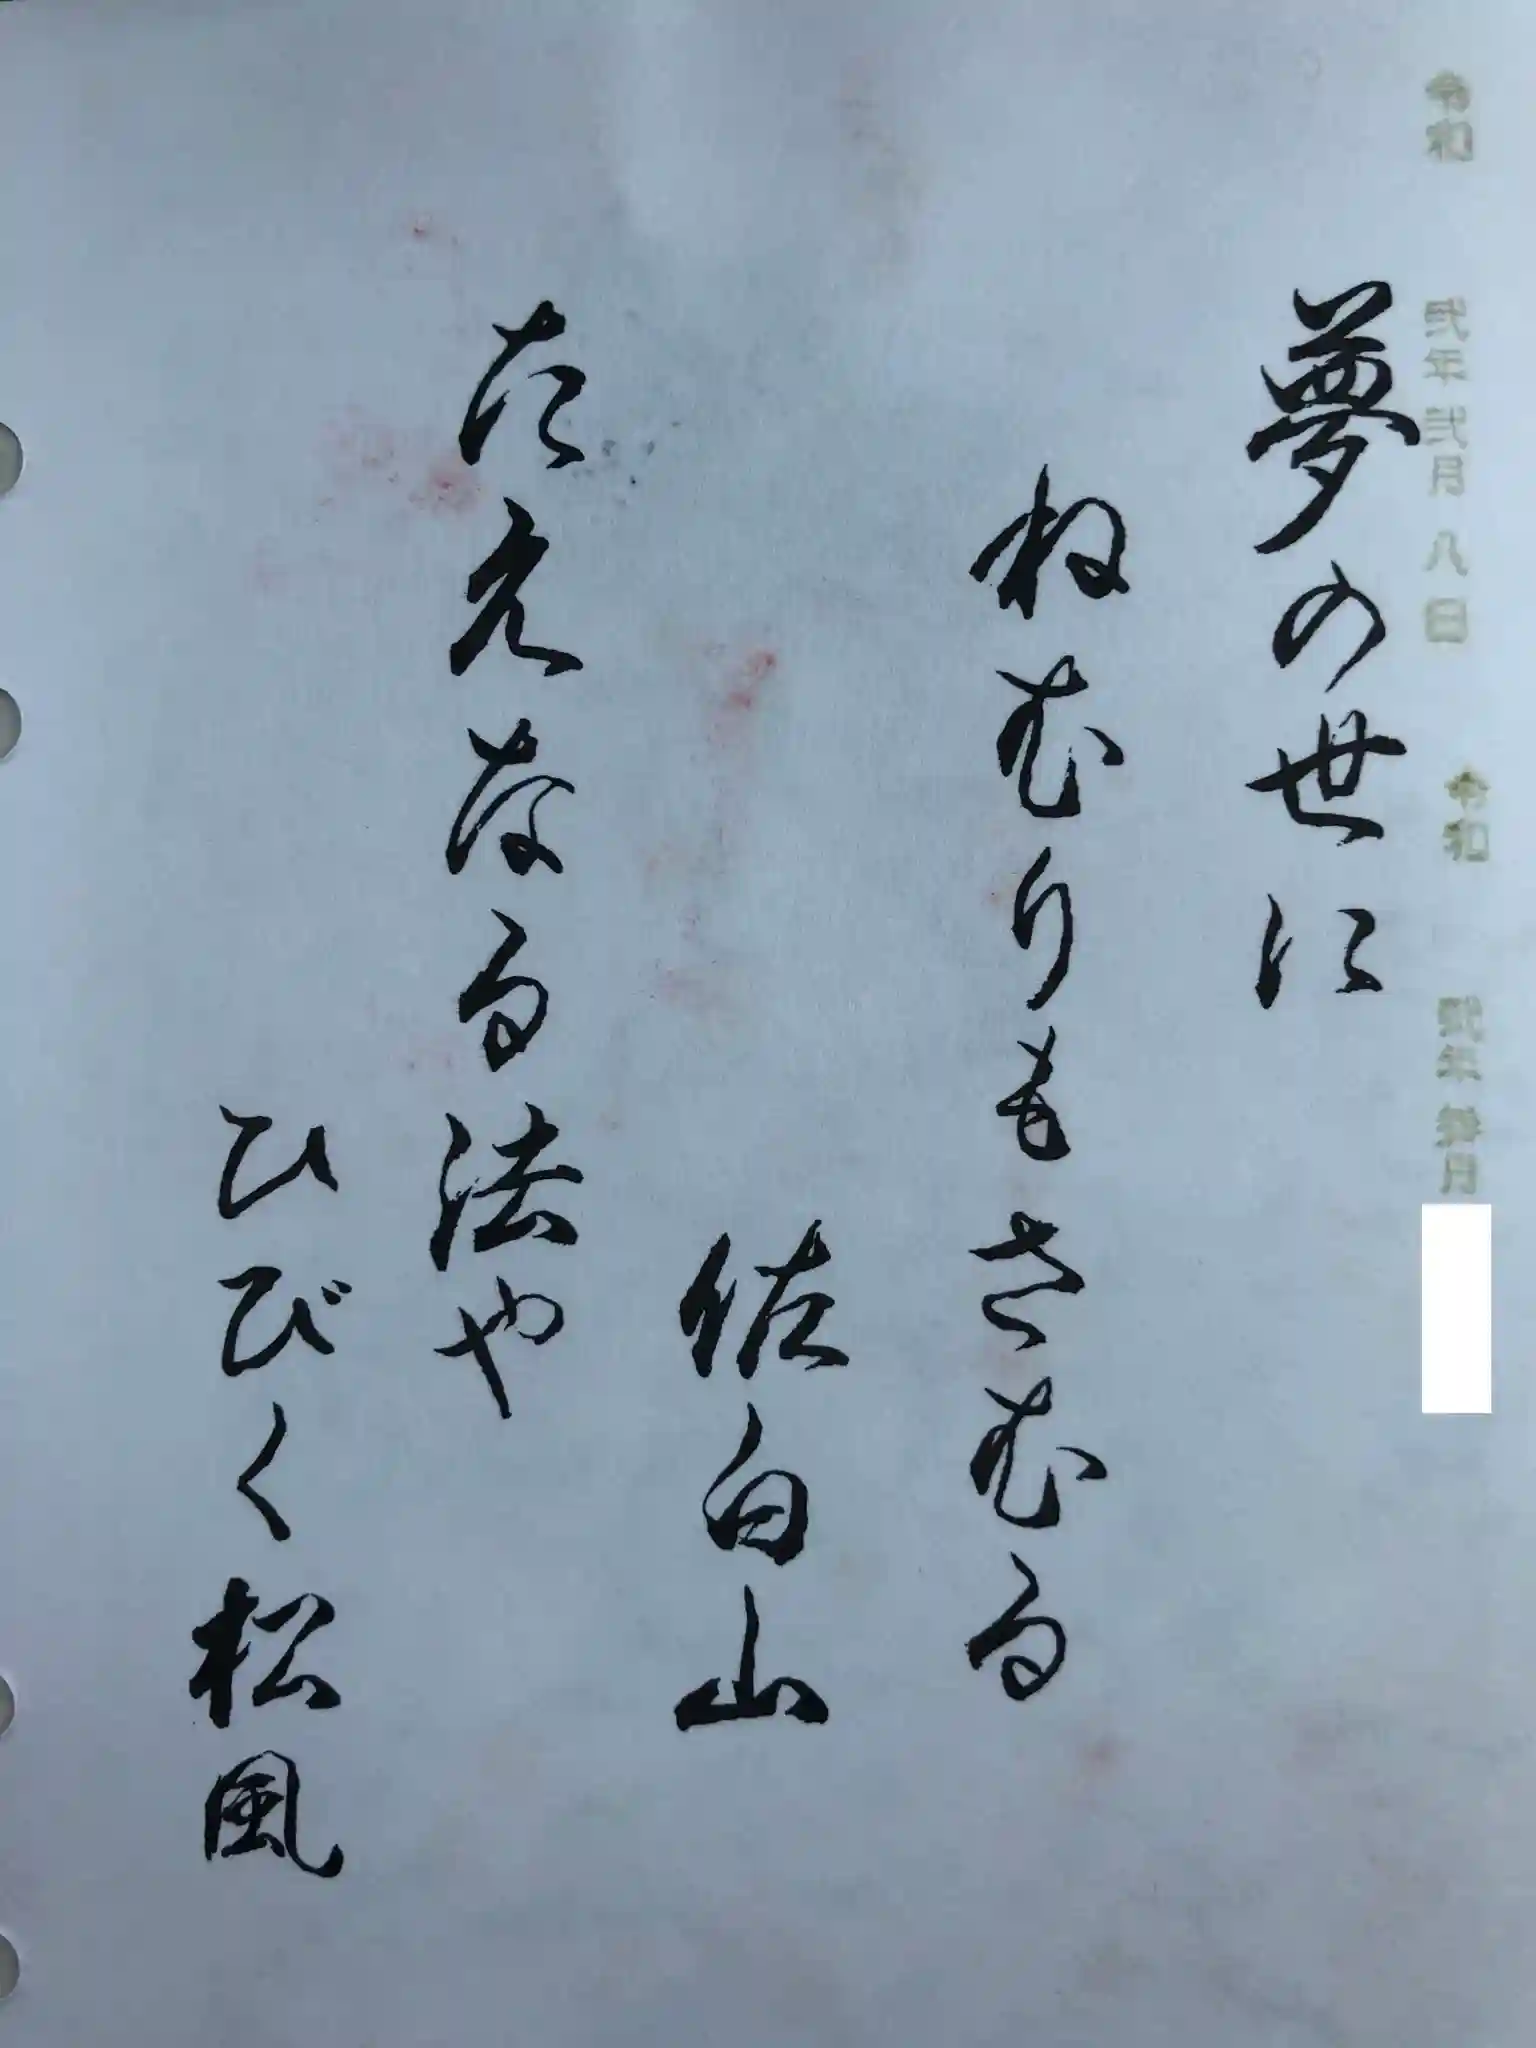 令和 弐年弐月八日 令和 弐年 拾月
夢の世に
ねむりもさむる
佐白山
たえなる法や
ひびく松風